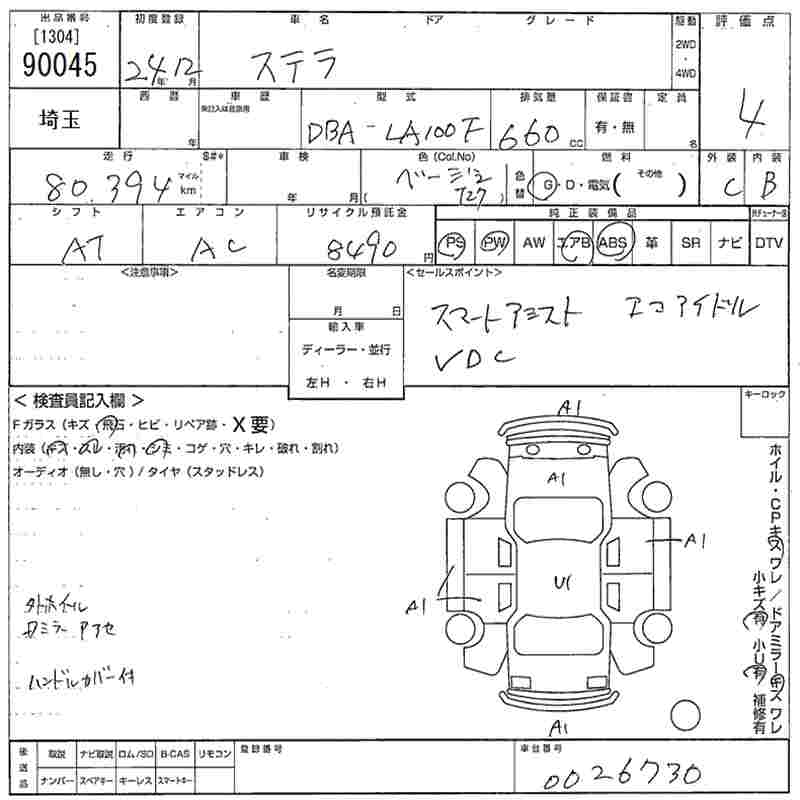 出品番号 初度登録 車名 ドア グレード 駆動 評価点
[1304]
90045 24年12月 ステラ 2WD・4WD 4
埼玉 西暦 年 車歴 型式 排気量 保証書 定員
DBA-LA100F 660cc 有・無 名
走行 車検 色(Col.No) 燃料 外装 内装
80,394 マイル km 年 月 ベージュ (T27) 色替 G・D・電気( その他 ) C B
シフト エアコン リサイクル預託金 純正装備品
AT AC 8490円 PS PW AW エアB ABS 革 SR ナビ DTV
<注意事項> 名変期限 <セールスポイント>
月 日 スマートアシスト エコアイドル
輸入車 VDC
ディーラー・並行
左H ・ 右H
< 検査員記入欄 > キーロック
Fガラス (キズ・飛石・ヒビ・リペア跡・X要)
内装 (キズ・スレ・汚れ・シミ・コゲ・穴・キレ・破れ・割れ)
オーディオ (無し・穴) / タイヤ (スタッドレス)
A1
A1
A1
U1
A1
A1
ホイル・CPキズ ワレ / ドアミラーキズ ワレ
小キズ有 小U有 補修有
ハンドルカバー付
後送品 取説 ナビ取説 ロム/SD B-CAS リモコン 登録番号 車台番号
ナンバー スペアキー キーレス スマートキー 0026730